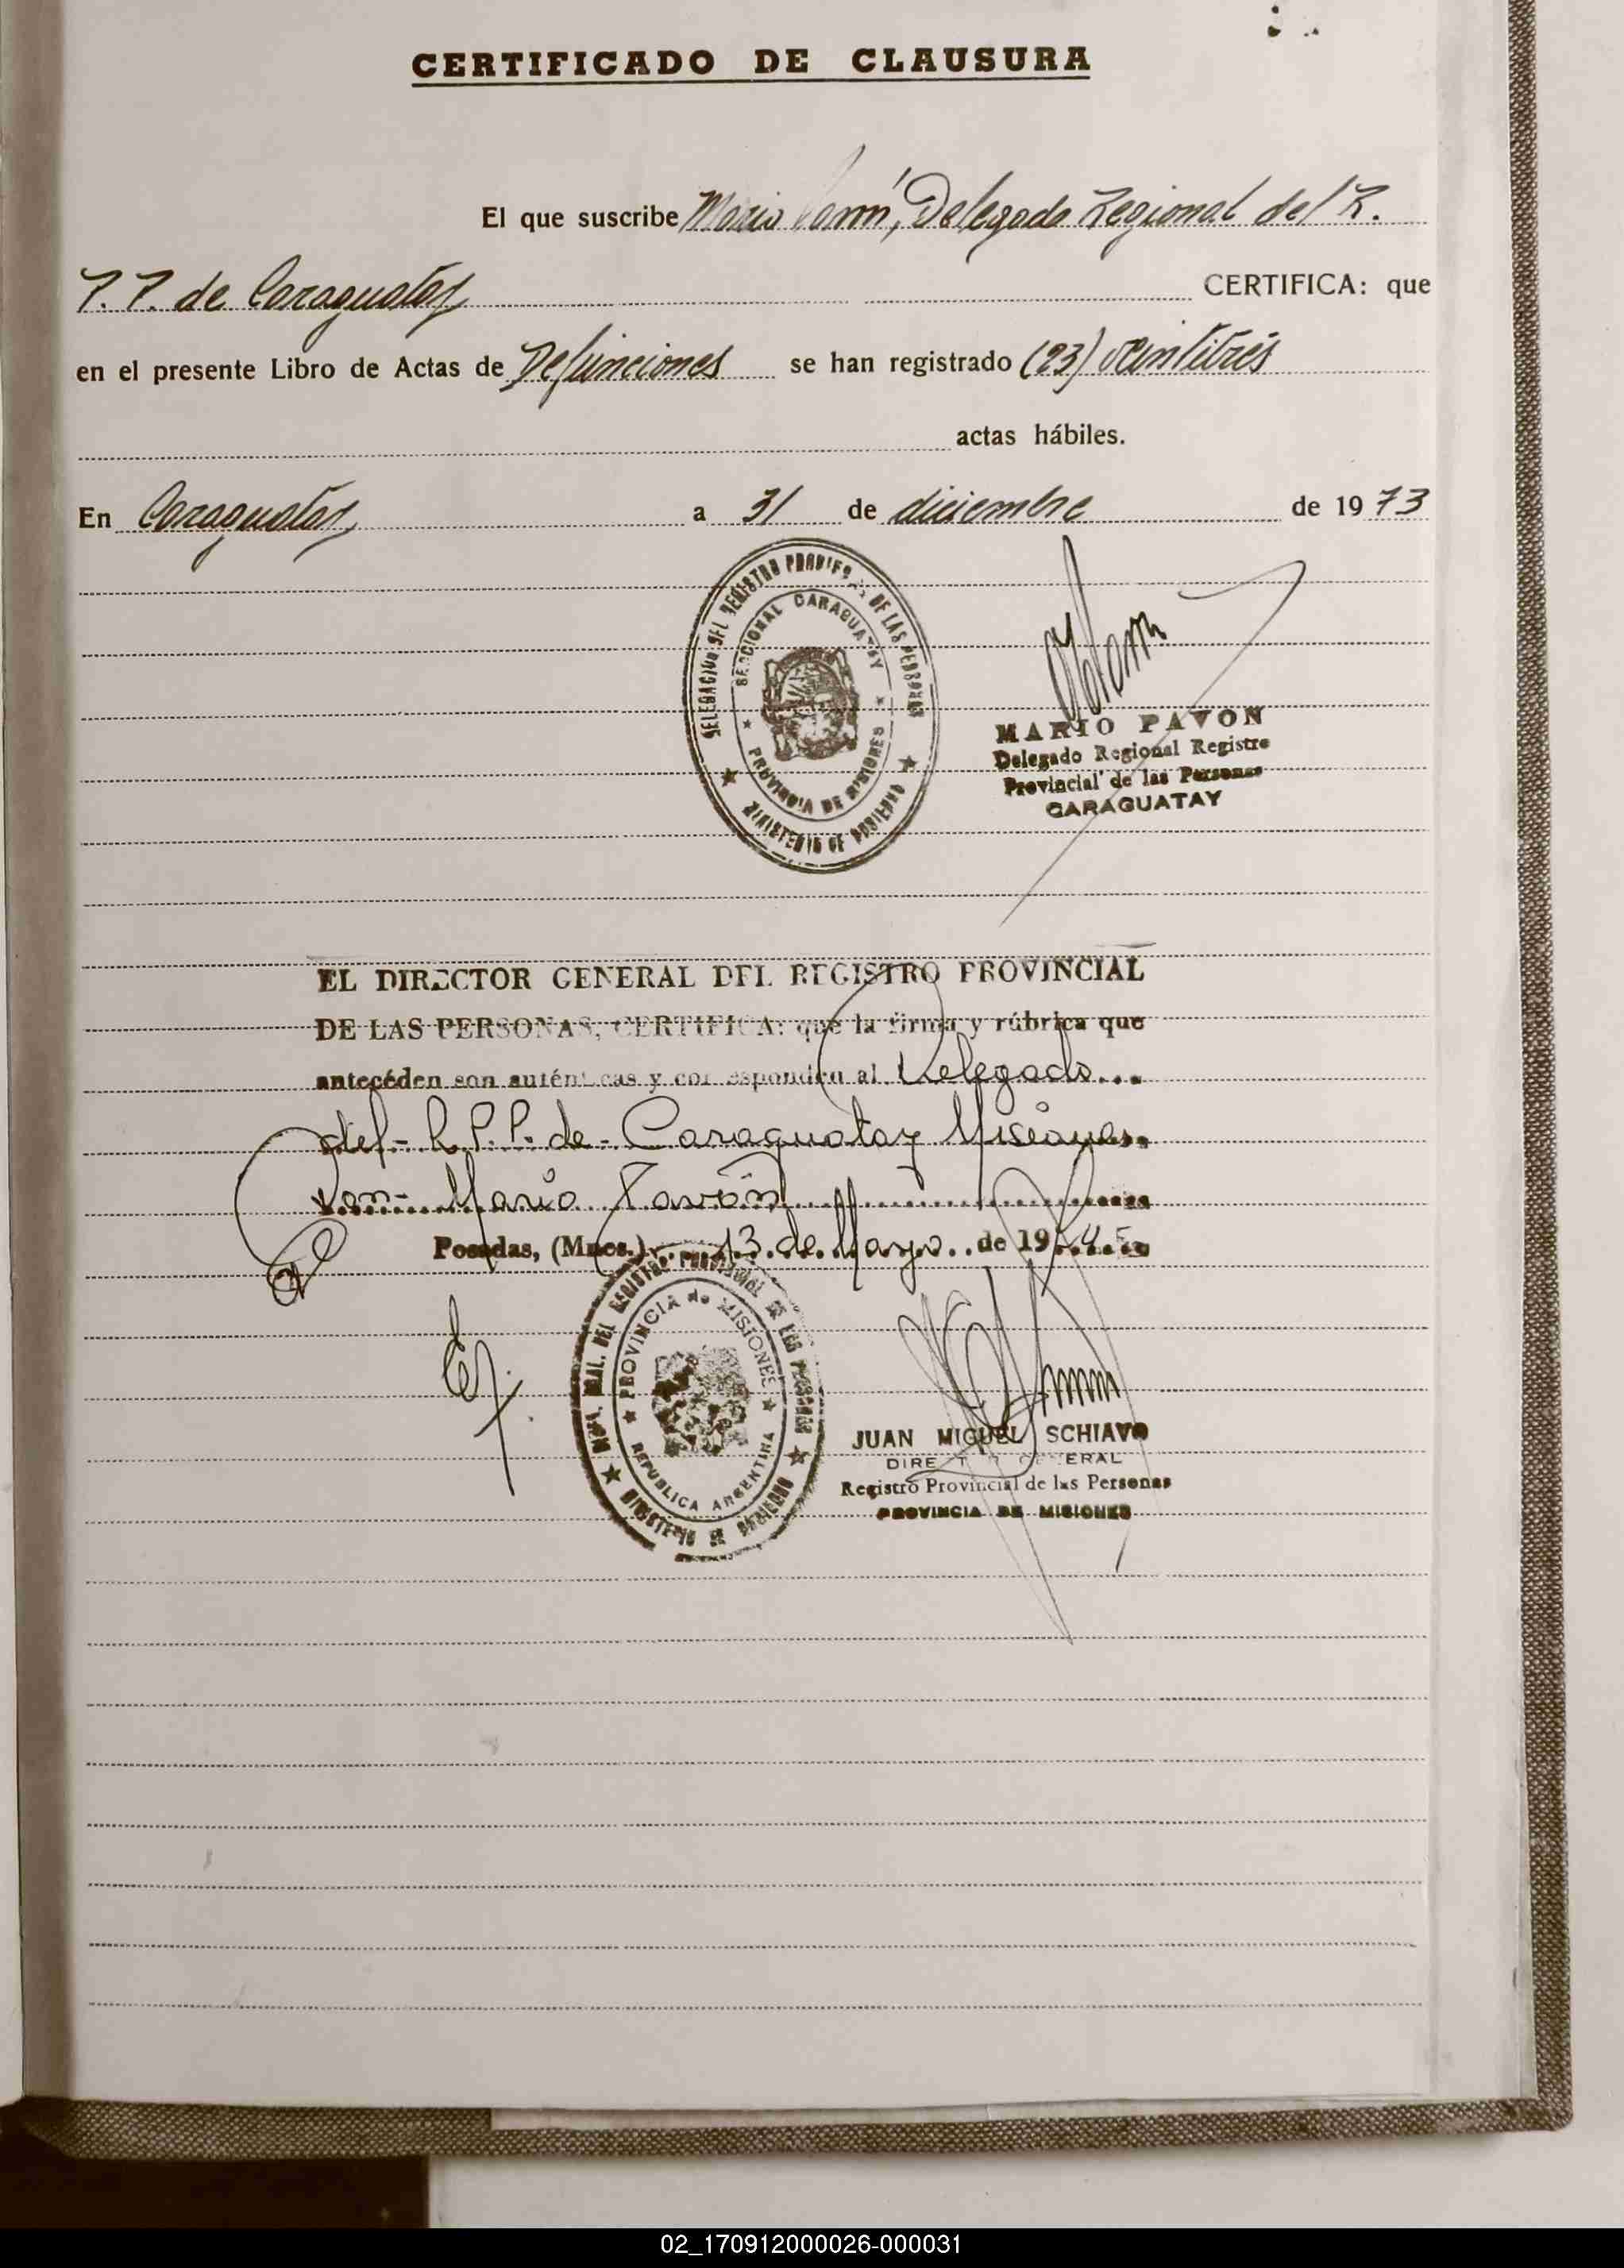 CERTIFICADO DE CLAUSURA
El que suscribe Mario Pavón, Delegado Regional del R.
P. P. de Caraguatay CERTIFICA: que
en el presente Libro de Actas de Defunciones se han registrado (23) veintitrés
actas hábiles.
En Caraguatay a 31 de diciembre de 1973
DELEGACION DEL REGISTRO PROVINCIAL DE LAS PERSONAS
SECCIONAL CARAGUATAY
PROVINCIA DE MISIONES
MINISTERIO DE GOBIERNO
MARIO PAVON
Delegado Regional Registro
Provincial de las Personas
CARAGUATAY
EL DIRECTOR GENERAL DEL REGISTRO PROVINCIAL
DE LAS PERSONAS, CERTIFICA: que la firma y rúbrica que
antecéden son auténticas y corresponden al Delegado
del R. P. P. de Caraguatay Misiones
Don Mario Pavón
Posadas, (Mnes.) 13 de Mayo de 19
DIREC. GRAL. DEL REGISTRO PROVINCIAL DE LAS PERSONAS
PROVINCIA de MISIONES
REPUBLICA ARGENTINA
MINISTERIO DE GOBIERNO
JUAN MIGUEL SCHIAVO
DIRECTOR GENERAL
Registro Provincial de las Personas
PROVINCIA DE MISIONES
02_170912000026-000031